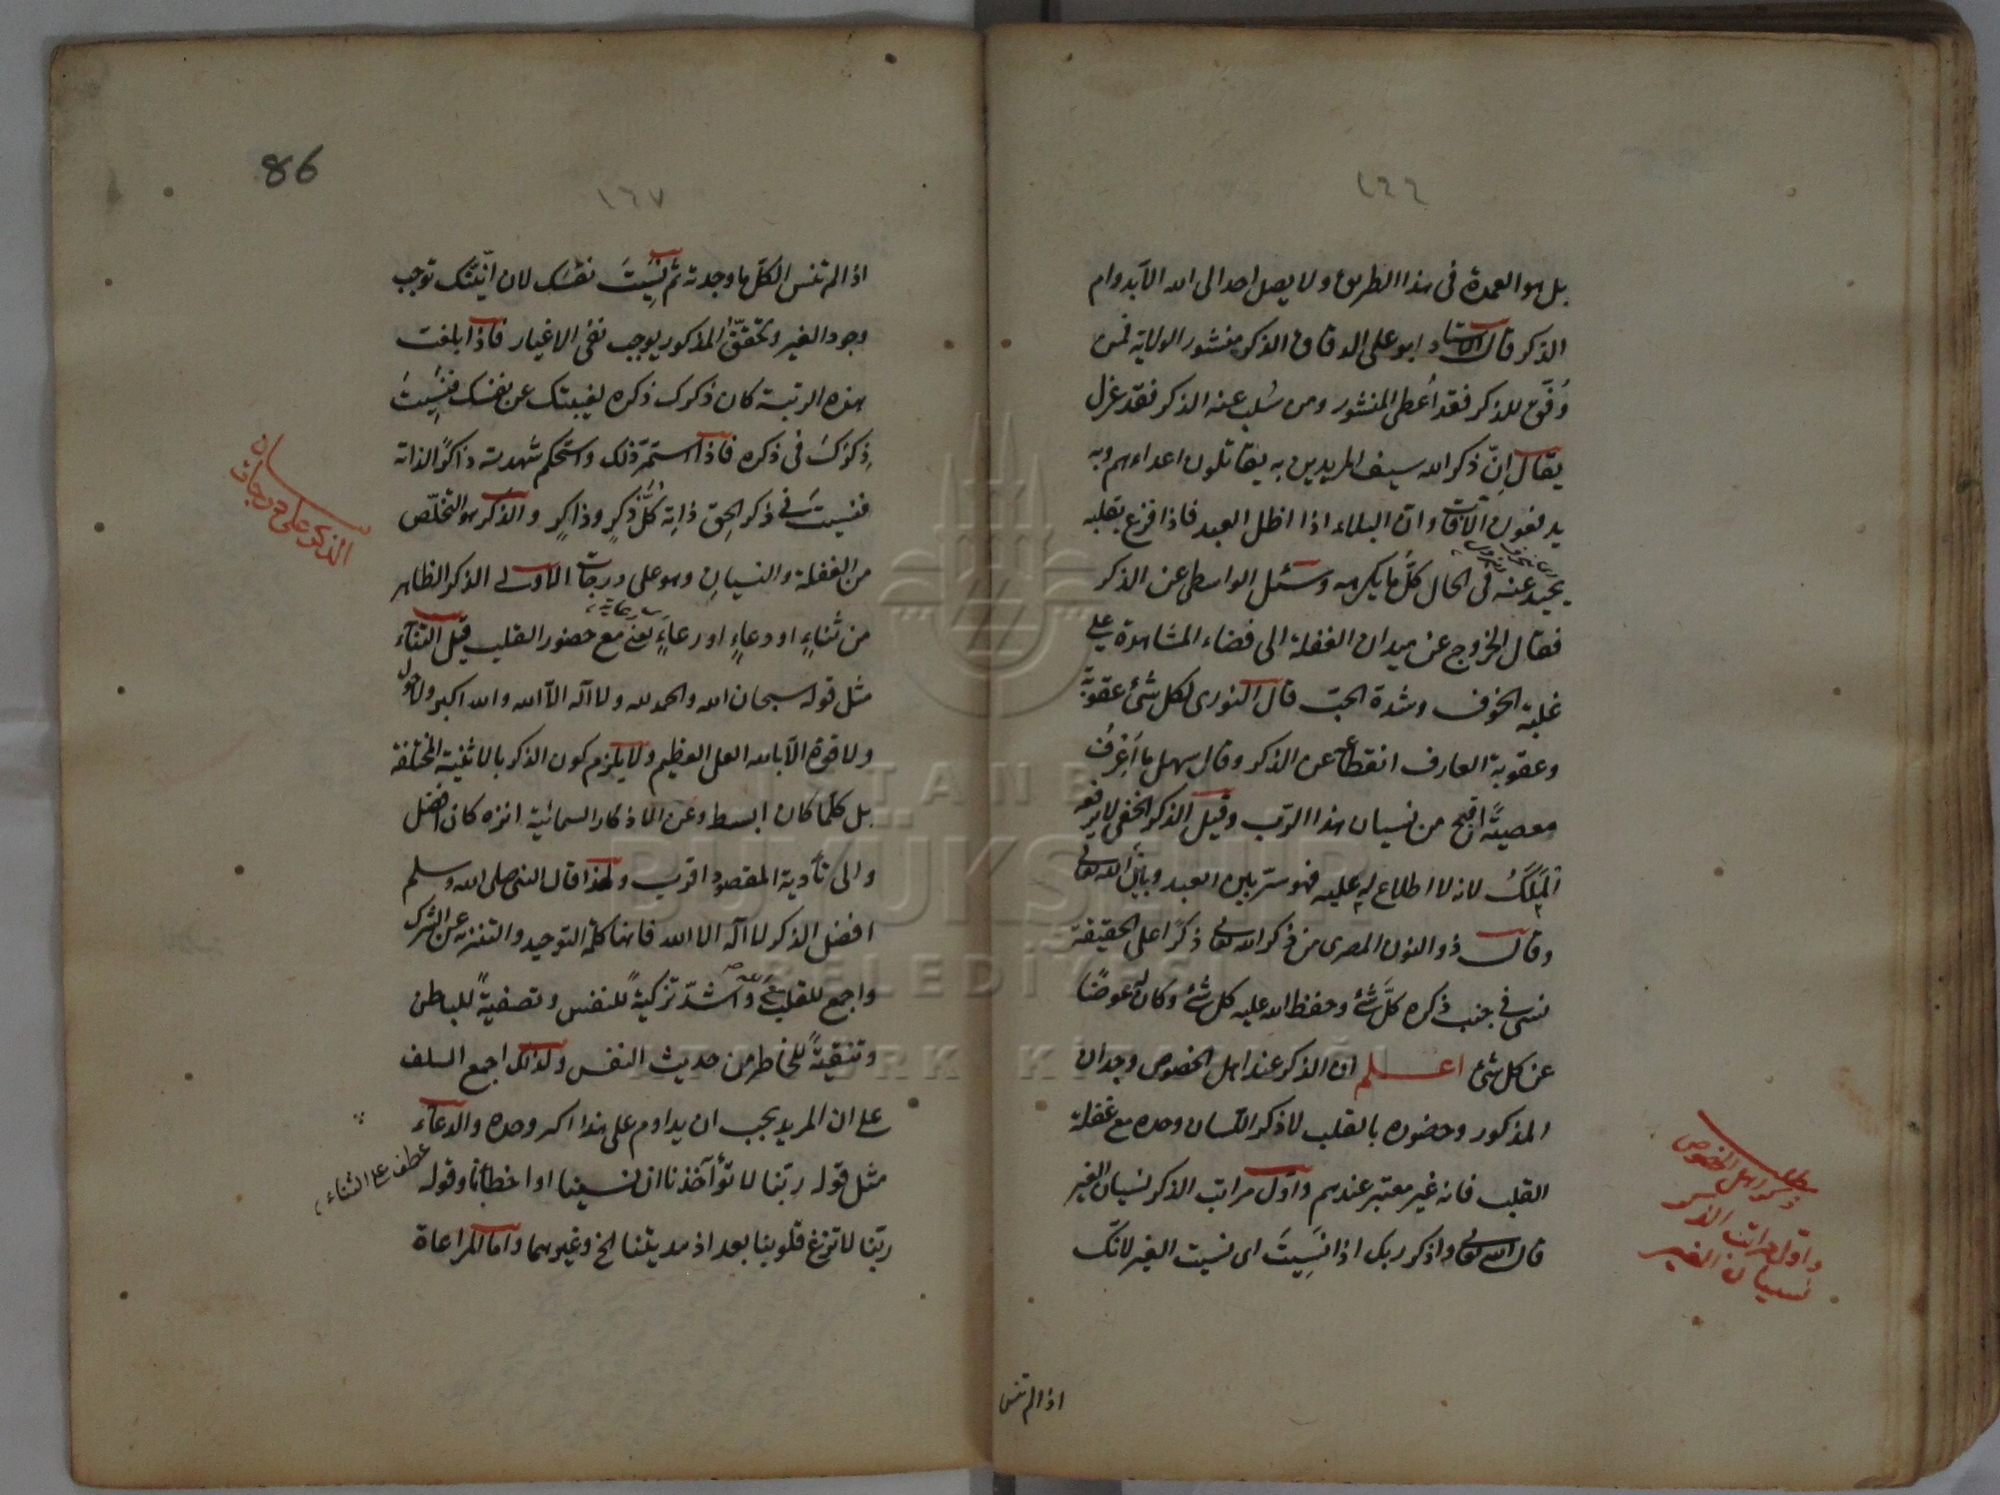 ١٦٦
بل هو العمدة فى هذا الطريق ولا يصل احد الى الله الا بدوام
الذكر قال الاستاد ابو على الدقاق الذكر منشور الولاية فمن
وُفِّق للذكر فقد اُعطى المنشور ومن سُلب عنه الذكر فقد عزل
يقال اِنّ ذكر الله سيف المريدين به يقاتلون اعداءهم وبه
يدفعون الآفات وان البلاء اذا اظل العبد فاذا فزع بقلبه
يحيد عنه فى الحال كلُّ ما يكرهه وسئل الواسطى عن الذكر
فقال الخروج عن ميدان الغفلة الى فضاء المشاهدة على
غلبة الخوف وشدة الحبّ قال النورى لكل شئ عقوبة
وعقوبة العارف انقطاع عن الذكر وقال سهل ما اَعْرِفُ
معصيةً اقبح من نسيان هذا الرب وقيل الذكر الخفى لا يرفعه
المَلَكُ لانه لا اطلاع له عليه فهو ستر بين العبد وبين الله تعالى
وقال ذو النون المصرى من ذكر الله تعالى ذكرًا على الحقيقة
نسى فى جنب ذكره كلَّ شئ وحفظ الله عليه كل شئ وكان له عوضًا
عن كل شئ اعلم ان الذكر عند اهل الخصوص وجدان
المذكور وحضوره بالقلب لا ذكر اللسان وحده مع غفلة
القلب فانه غير معتبر عندهم واول مراتب الذكر نسيان الغير
قال الله تعالى واذكر ربك اذا نَسِيتَ اى نسيت الغير لانك
ذكر اهل الخصوص
واول مراتب الذكر
نسيان الغير
اذا لم تنس
86
١٦٧
اذا لم تنس الكل ما وجدته ثم نَسِيتَ نفسَك لان انّيّتك توجب
وجود الغير وتحقّق المذكور يوجب نفى الاغيار فاذا بلغت
هذه الرتبة كان ذكرك ذكره لغيبتك عن نفسك فنَسِيتَ
ذِكرَكَ فى ذكره فاذا استمرّ ذلك واستحكم شهدته ذاكرًا لذاته
فنسيتَ فى ذكر الحق ذاته كلَّ ذكرٍ وذاكرٍ والذكر هو التخلّص
من الغفلة والنسيانِ وهو على درجات الاولى الذكر الظاهر
من ثناءٍ او دعاءٍ او رعاءٍ يعنى مع حضور القلب قيل الثناء
مثل قوله سبحان الله والحمد لله ولا اله الا الله والله اكبر ولا حول
ولا قوة الا بالله العلى العظيم ولا يلزم كون الذكر بالاثنية المختلفة
بل كلما كان ابسط وعن الاذكار السمائية انزه كان افضل
والى تأدية المقصود اقرب ولهذا قال النبى صلى الله وسلم
افضل الذكر لا اله الا الله فانها كلمة التوحيد والتنزيه عن الشرك
واجمع للقلب واشدّ تزكيةً للنفس وتصفيةً للباطن
وتنقيةً للخاطر من حديث النفس ولذلك اجمع السلف
على ان المريد يجب ان يداوم على هذا اكبر وحده والدعاء
مثل قوله ربّنا لا تؤاخذنا ان نسينا او اخطأنا وقوله
ربّنا لا تزغ قلوبنا بعد اذ هديتنا الخ وغيرهما واما المراعاة
الذكر على درجات
عطف على الثناء